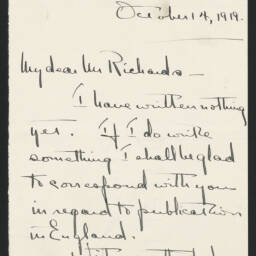 October 14, 1919.
My dear Mr Richards –
I have written nothing
yet. If I do write
something I shall be glad
to correspond with you
in regard to publication
in England.